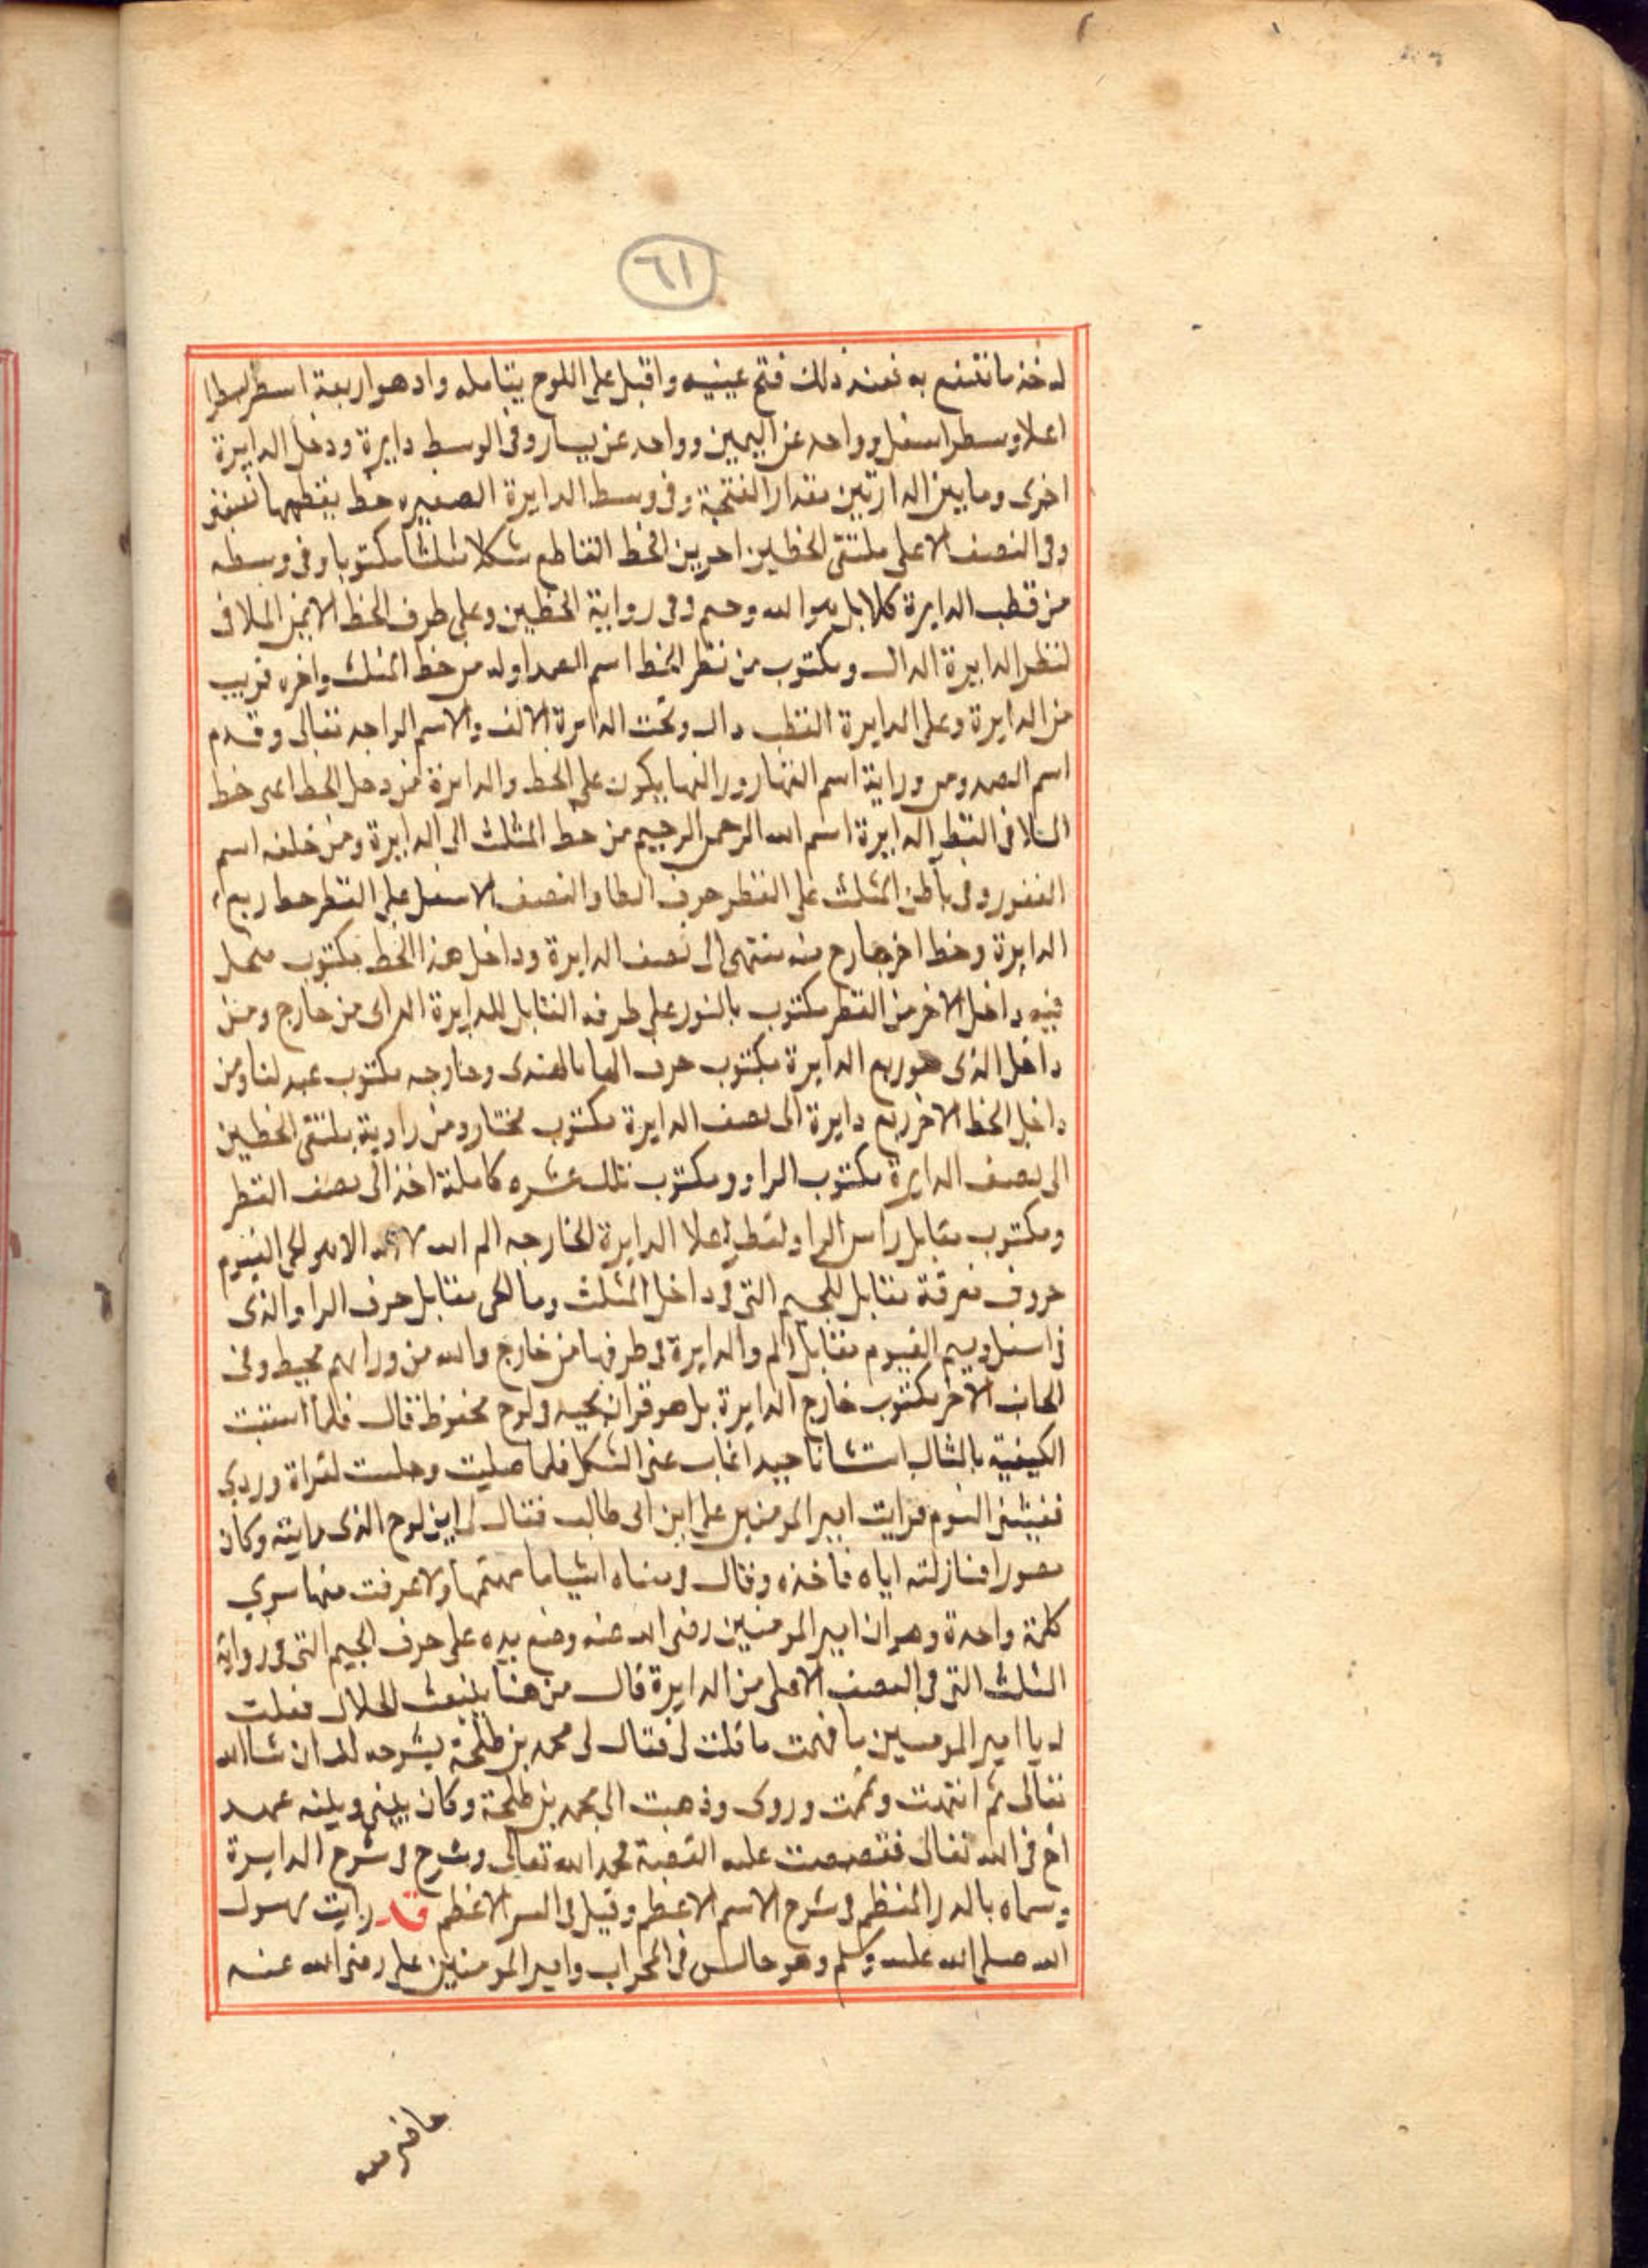 ٦١
له خذ ما تنتفع به فعند ذلك فتح عينيه واقبل على اللوح يتامله واذ هو اربعة اسطر سطرا
اعلا وسطر اسفل وواحد عن اليمين وواحد عن يسار وفى الوسط دايرة ودخل الدايرة
اخرى وما بين الدارتين مقدار الفتحة وفى وسط الدايرة الصغيره خط يقطعها نصفين
وفى النصف الاعلى ملتقى الخطين اخرين الخط القاطع شكلا مثلثا مكتوبا وفى وسطه
من قطب الدايرة كلا بل هو الله وجيم وفى رواية الخطين وعلى طرف الخط الايمن الملاقى
لقطر الدايرة الدال ومكتوب من نظر الخط اسم الصمد اوله من خط المثلث واخره قريب
من الدايرة وعلى الدايرة القطب دال وتحت الدايرة الالف والاسم الواجد تعالى وقدم
اسم الصمد ومن وراية اسم القهار وراالها يكون على الخط والدايرة من دخل الخط اعنى خط
الملاقى القطر الدايرة اسم الله الرحمن الرحيم من خط المثلث الى الدايرة ومن خلفه اسم
الغفور وفى باطن المثلث على القطر حرف الطا والنصف الاسفل على القطر خط ربع
الدايرة وخط اخر خارج منه ينتهى الى نصف الدايرة وداخل هذا الخط مكتوب
فيه داخل الاخر من القطر مكتوب بالنور على طرفه القابل للدايرة الدال من خارج ومن
داخل الذى هو ربع الدايرة مكتوب حرف الها بالهندى وخارجه مكتوب عبد لنا ومن
داخل الخط الاخر ربع دايرة الى نصف الدايرة مكتوب مختار ومن زاوية ملتقى الخطين
الى نصف الدايرة مكتوب الراو ومكتوب تلك عشره كاملة اخذ الى نصف القطر
ومكتوب مقابل راس الراو لقطر اعلا الدايرة الخارجه الم الله لا اله الا هو الحى القيوم
حروف مفرقة مقابل للجيم التى فى داخل المثلث وما الحى مقابل حرف الراو الذى
فى اسفل وميم القيوم مقابل الم والدايرة فى طرفها من خارج والله من ورايهم محيط وفى
الجانب الاخر مكتوب خارج الدايرة بل هو قران مجيد فى لوح محفوظ قال فلما اثبت
الكيفية بالمثال اتشانا جيدا غاب عنى الشكل فلما صليت وجلست لقراة وردى
فغيشنى النوم فرايت امير المومنين على ابن ابى طالب فقال لى اين لوح الذى رايته وكان
مصورا فناولته اياه فاخذه وقال فى معناه اشياء ما فهمتها ولا عرفت منها سوى
كلمة واحدة وهو ان امير المومنين رضى الله عنه وضع يده على حرف الجيم التى فى زواية
المثلث التى فى النصف الاعلى من الدايرة قال من هنا ينبعث الجلال فقلت
له يا امير المومنين ما فهمت ما قلت لى فقال لى محمد بن طلحة يشرحه لك ان شاالله
تعالى ثم انتهت وقمت وروى وذهبت الى محمد بن طلحة وكان بينى وبينه عهد
اخ فى الله تعالى فقصصت عليه القصة فحمد الله تعالى وشرح فى شرح الدايرة
وسماه بالدر المنظم فى شرح الاسم الاعظم وقيل فى السر الاعظم قد رايت رسول
الله صلى الله عليه وسلم وهو جالس فى المحراب وامير المومنين على رضى الله عنه